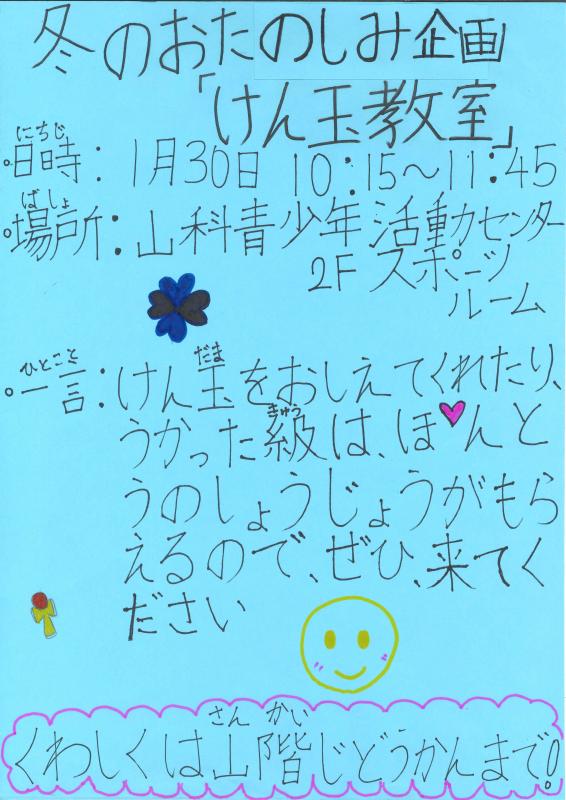 冬のおたのしみ企画
「けん玉教室」
にちじ
日時:1月30日 10:15〜11:45
ばしょ
場所:山科青少年活動センター
2F スポーツ
ルーム
ひとこと だま
一言:けん玉をおしえてくれたり、
きゅう
うかった級は、ほんと
うのしょうじょうがもら
えるので、ぜひ、来てく
ださい
さん かい
くわしくは山階じどうかんまで!